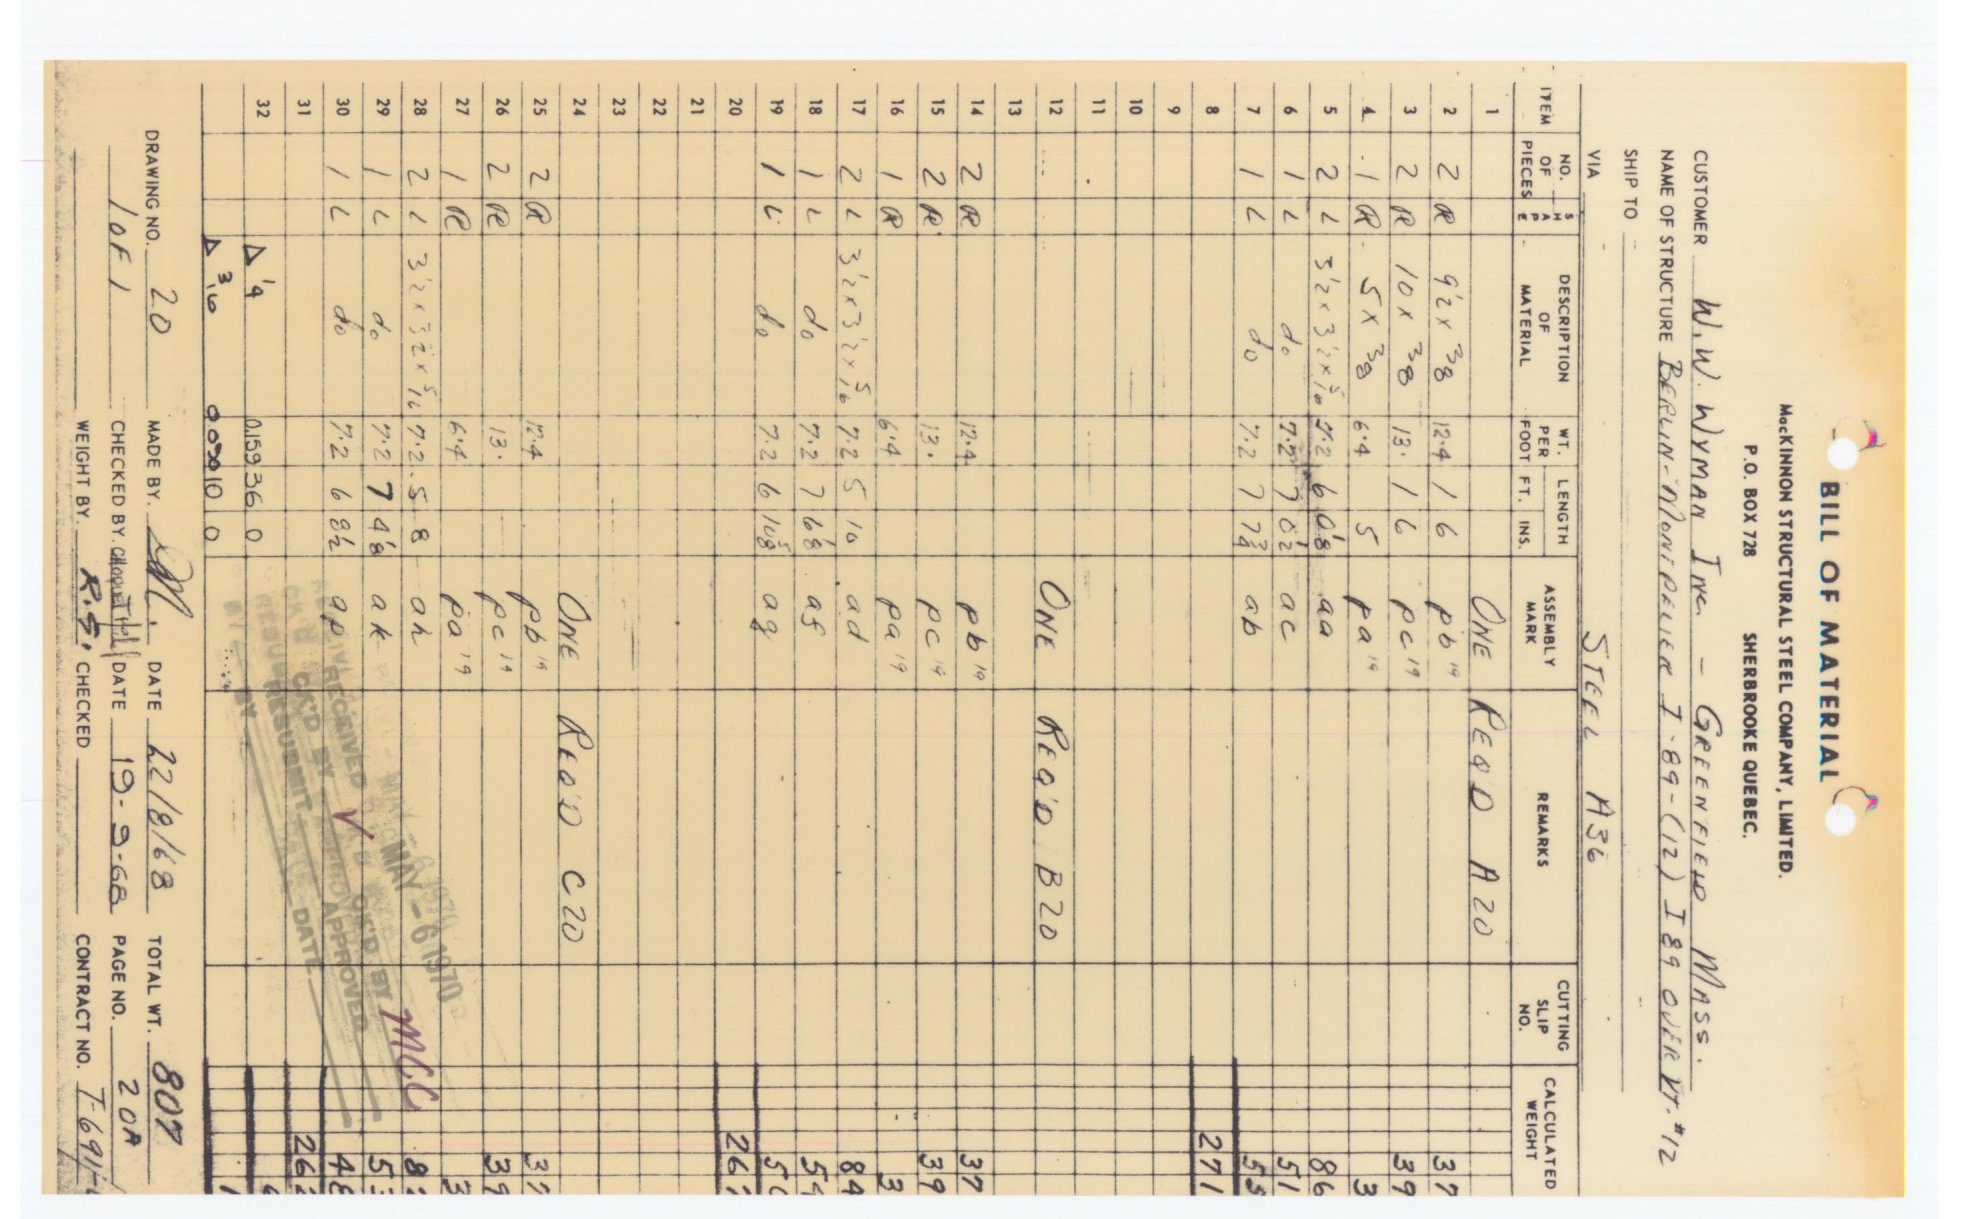 BILL OF MATERIAL
MacKINNON STRUCTURAL STEEL COMPANY, LIMITED.
P.O. BOX 728 SHERBROOKE QUEBEC.
CUSTOMER W.W. WYMAN INC. - GREENFIELD MASS.
NAME OF STRUCTURE BERLIN-MONTPELIER I-89-(12) I 89 OVER VT. #12
SHIP TO
VIA STEEL A36
ITEM NO. OF PIECES SHAPE DESCRIPTION OF MATERIAL WT. PER FOOT LENGTH FT. INS. ASSEMBLY MARK REMARKS CUTTING SLIP NO. CALCULATED WEIGHT
1 ONE REQ'D A20
2 2 PL 9 1/2 x 3/8 12.4 1 6 pb 19 37
3 2 PL 10 x 3/8 13. 1 6 pc 19 39
4 1 PL 5 x 3/8 6.4 5 pa 19 3
5 2 L 3 1/2 x 3 1/2 x 5/16 7.2 6 0 1/8 aa 86
6 1 L do 7.2 7 0 1/2 ac 51
7 1 L do 7.2 7 7 3/4 ab 55
8 271
9
10
11
12 ONE REQ'D B20
13
14 2 PL 12.4 pb 19 37
15 2 PL 13. pc 19 39
16 1 PL 6.4 pa 19 3
17 2 L 3 1/2 x 3 1/2 x 5/16 7.2 5 10 ad 84
18 1 L do 7.2 7 6 1/8 af
19 1 L do 7.2 6 10 5/8 ag
20
21
22
23
24 ONE REQ'D C20
25 2 PL 12.4 pb 19 37
26 2 PL 13. pc 19 39
27 1 PL 6.4 pa 19 3
28 2 L 3 1/2 x 3 1/2 x 5/16 7.2 5 8 ah
29 1 L do 7.2 7 4 1/8 ak
30 1 L do 7.2 6 8 1/2 ap 48
31 262
32 △ 1/4 0.159 36 0
△ 3/16 10 0
RECEIVED MAY - 6 1970
OK'D BY MCC
APPROVED
RESUBMIT
BY DATE
DRAWING NO. 20 MADE BY. DATE 22/8/68 TOTAL WT. 807
1 OF 1 CHECKED BY. DATE 19-9-68 PAGE NO. 20A
WEIGHT BY. R.S. CHECKED CONTRACT NO. T-691